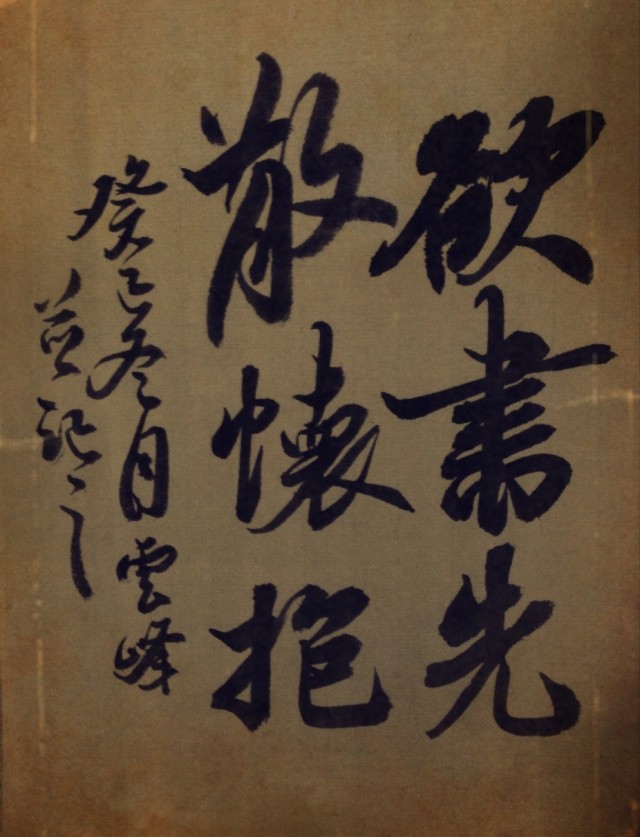 欲書先
散懷抱
癸巳冬月雲峰
并記之